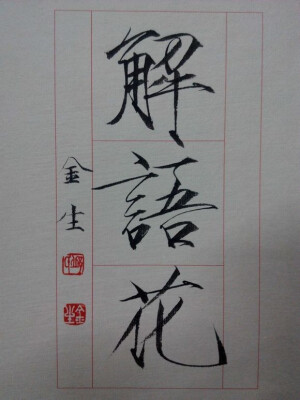 解語花
金生